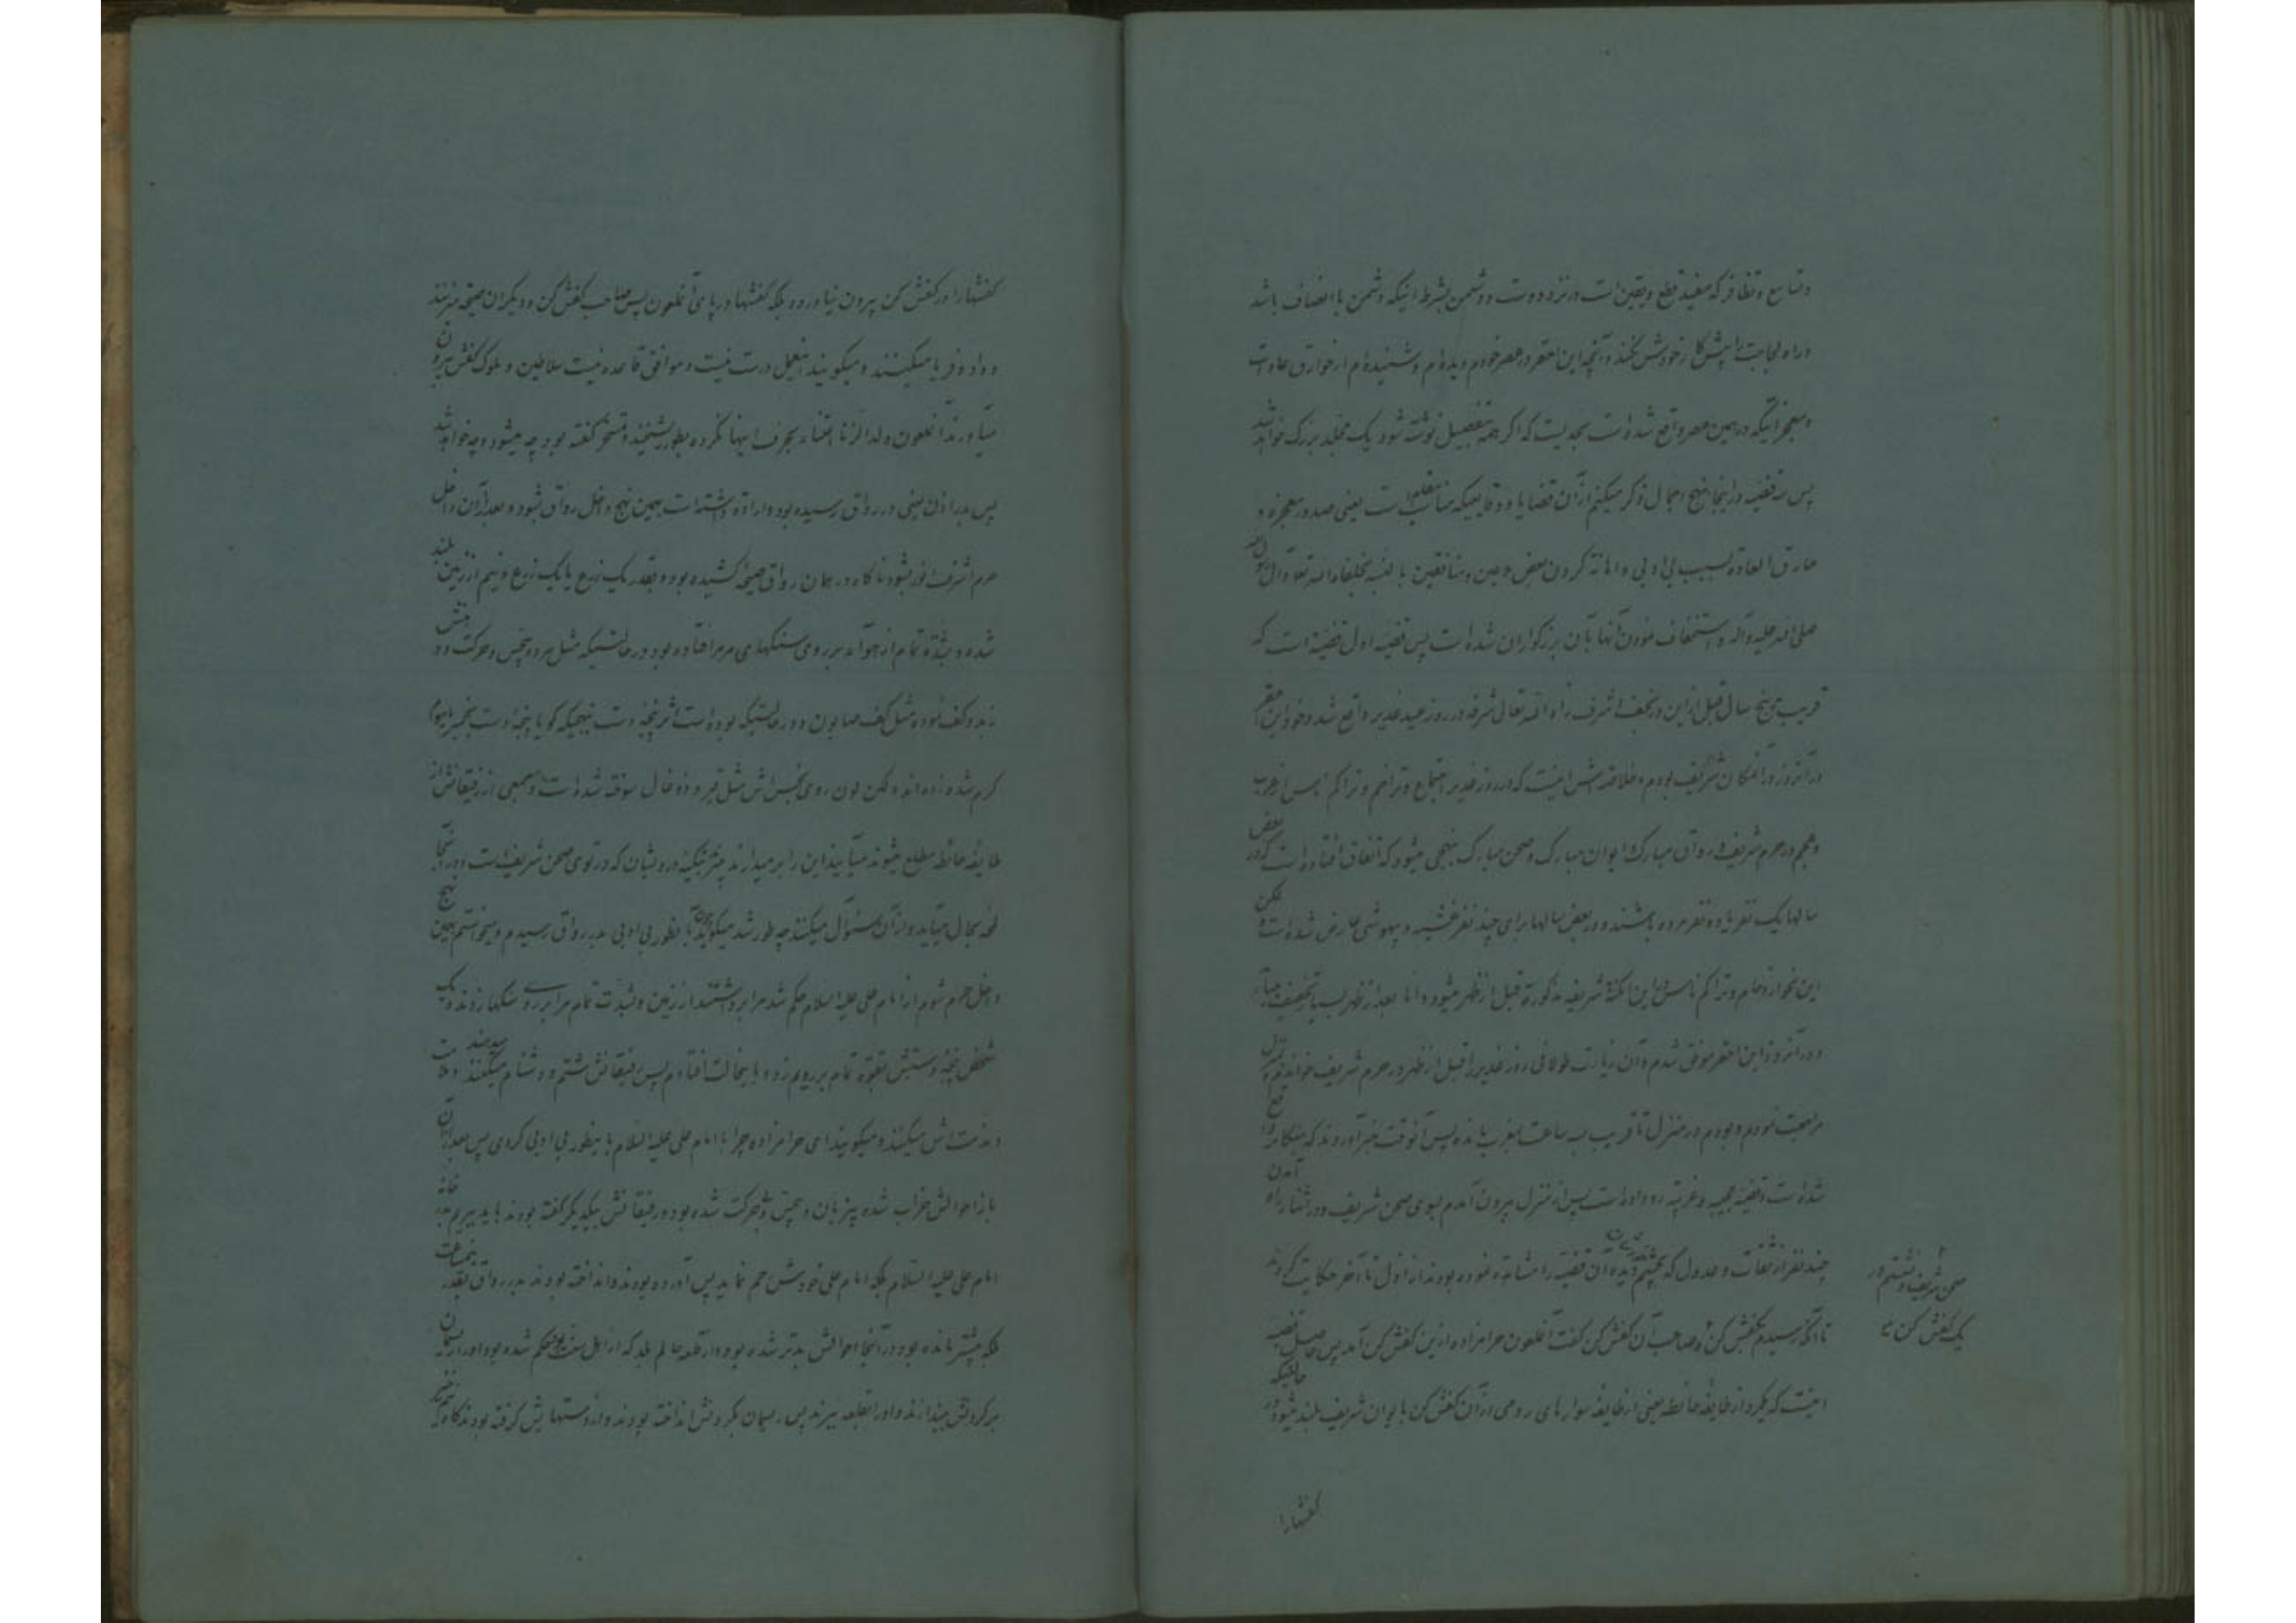 و تسامع و تظافر که مفید قطع و یقین است در نزد دوست و دشمن بشرط اینکه دشمن با انصاف باشد
و راه لجاجت را پیش کار خودش نکند و آنچه این احقر در عصر خودم دیده‌ام و شنیده‌ام از خوارق عادات
و معجزاتیکه در همین عصر واقع شده است بحدیست که اگر همه بتفصیل نوشته شود یک مجلد بزرگ خواهد شد
پس قضیه در اینجا بنهج اجمال ذکر میکنم از آن قضایا و وقایعیکه مناسب مقام است یعنی صدور معجزه و
خارق العاده بسبب بی ادبی و اهانة کردن بعض و منافقین بالنسبه بخلفاء الله تعالی و آل رسول الله
صلی الله علیه و آله و استخفاف نمودن آنها بآن بزرگواران شده است پس قضیه اول قضیه است که
قریب به پنج سال قبل از این در نجف اشرف زاد الله تعالی شرفه در روز عید غدیر واقع شد و خود این احقر
در آنروز در آنمکان شریف بودم و خلاصه‌اش اینست که در روز غدیر اجتماع و تزاحم و تراکم ناس از عرب
و عجم در حرم شریف و رواق مبارک و ایوان مبارک و صحن مبارک بنهجی میشود که اتفاق افتاده است که در بعض
سالها یک نفر یا دو نفر مرده باشند و در بعض سالها برای چند نفر غشیه و بیهوشی عارض شده است و لکن
این نحو ازدحام و تراکم ناس در این امکنهٔ شریفه مذکوره قبل از ظهر میشود و اما بعد از ظهر بسیار تخفیف مییابد
و در آنروز این احقر موفق شدم و آن زیارت طولانی روز غدیر را قبل از ظهر در حرم شریف خواندم و بمنزل
مراجعت نمودم و بودم در منزل تا قریب به ساعت بغروب مانده پس آنوقت خبر آوردند که هنگامه واقع
شده است و قضیهٔ عجیبه و غریبه رو داده است پس از منزل بیرون آمدم بسوی صحن شریف و در اثناء راه آمدن
چند نفر از ثقات و عدول که بچشم دیده آن قضیه را مشاهده نموده بودند از اول تا آخر حکایت کردند
صحن شریف و نشستم در
یک کفش کن
تا آنکه رسیدم بکفش کن و صاحب آن کفش کن گفت آنملعون حرامزاده از این کفش کن آمد پس اصل قضیه
اینست که یکمرد از طایفهٔ حایطه یعنی از طایفهٔ سوارهای رومی از آن کفش کن بایوان شریف بلند میشود در حالتیکه
کفشها را
کفشها را در کفش کن بیرون نیاورده بلکه کفشها در پای آنملعون پس صاحب کفش کن و دیگران صیحه میزنند
و داد و فریاد میکنند و میگویند اینعمل درست نیست و موافق قاعده نیست سلاطین و ملوک کفش بیرون
میآورند آنملعون ولد الزنا اعتناء بحرف اینها نکرده بطور ریشخند و تمسخر گفته بود چه میشود و چه خواهد شد
پس بدر اذن یعنی در رواق رسیده بود و اراده داشته است بهمین نهج داخل رواق بشود و بعد از آن داخل
حرم اشرف انور بشود ناگاه در همان رواق صیحه کشیده بود و بقدر یک ذرع یا یک ذرع و نیم از زمین بلند
شده و بشدة تمام از هوا آمده بر روی سنگهای مرمر افتاده بود در حالتیکه مثل مرده بیحس و حرکت و دهنش
زبد و کف نموده مثل کف صابون و در حالتیکه بوده است اثر پنجهٔ دست بنهجیکه گویا پنجهٔ دست
گرم شده زده‌اند و لکن لون روی نجس‌اش مثل قیر و ذغال سوخته شده است و جمعی از رفیقانش از
طایفهٔ حایطه مطلع میشوند میآیند این را بر میدارند میبرند بتکیه درویشان که در توی صحن شریف است و در آنجا
بحال میآید و از آن سئوال میکنند چه طور شد میگوید چون آنطور بی ادبی بدر رواق رسیدم و میخواستم بهمین نهج
داخل حرم شوم از امام علی علیه السلام حکم شد مرا برداشتند از زمین و بشدت تمام مرا بر روی سنگها زدند و یک
شخص پنجهٔ دستش بقوة تمام بر رویم زد و باینحالت افتادم پس رفیقانش شتم و دشنام میدهند و ملامت
و مذمت‌اش میکنند و میگویند ای حرامزاده چرا با امام علی علیه السلام باینطور بی ادبی کردی پس بعد از آن
باز احوالش خراب شده بی زبان و بیحس و حرکت شده بود و رفیقانش بیکدیگر گفته بودند باید ببریم بدر خانه
امام علی علیه السلام بلکه امام علی خودش رحم نماید پس آورده بودند و انداخته بودند بدر رواق بقدر نیمساعت
بلکه بیشتر مانده بود در آنجا احوالش بدتر شده بود و از قلعه حاکم بلد که از اهل سنت بود حکم شده بود او را ریسمان
بر گردنش بیندازند و او را بقلعه ببرند پس ریسمان بگردنش انداخته بودند و از دستهایش گرفته بودند